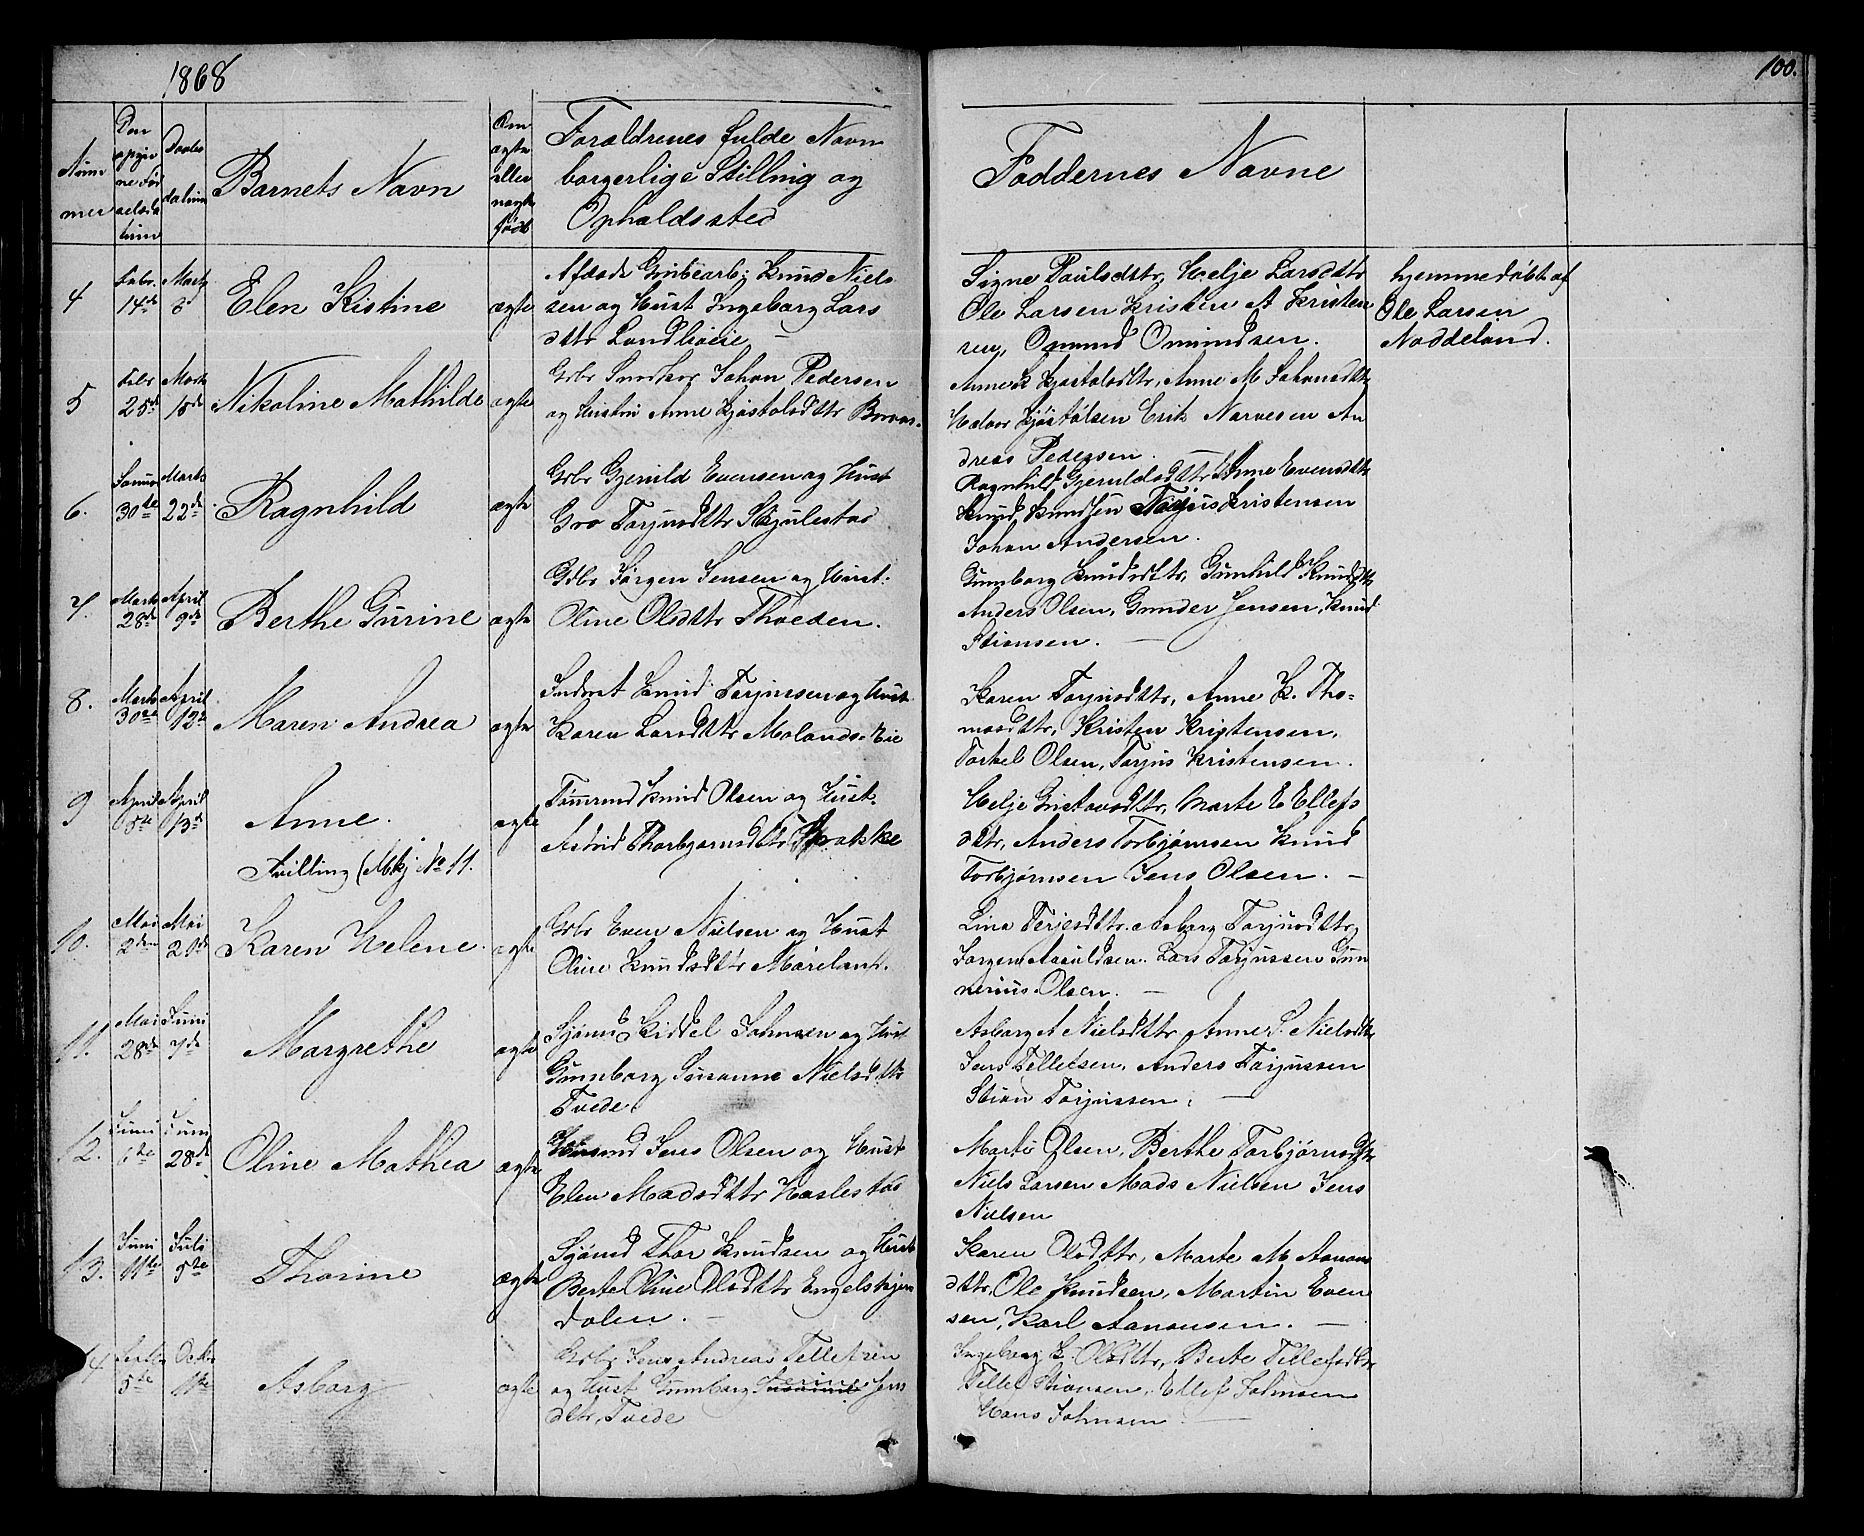 1868
100.
Num
mer
Den
opgiv
ne Fød
selsda
tum
Daabs
datum
Barnets Navn
Om
ægte
eller
uægte
født
Forældrenes fulde Navn
borgerlige Stilling og
Opholdssted
Faddernes Navne
4
Febr.
14de
Marts
8
Elen Kistine
ægte
Afskede Grubearb; Knud Niels
sen og Hust Ingeborg Lars
dttr
Signe Paulsdttr, Helje Larsdttr
Ole Larsen Kristen A Kristen
sen, Omund Omundsen.
hjemmedøbt af
Ole Larsen
Noddeland.
5
Febr
25de
Marts
15de
Nikoline Mathilde
ægte
Grbr Snedker Johan Pedersen
og Hustru Anne Kjøstolsdttr
Anne K Kjøstolsdttr, Anne M Johansdttr
Halvor Kjøstolsen Erik Narvesen An
dreas Pedersen.
6.
Januar
30te
Marts
22de
Ragnhild
ægte
Grbr Gjeruld Evensen og Hust
Gro Torjusdttr Skjulestad
Ragnhild Gjeruldsdttr Anne Evensdttr
Knud Knudsen Torjus Kristensen
Johan Andersen.
7.
Marts
28de
April
9de
Berthe Gurine
ægte
Gdbr Jørgen Jensen og Hust:
Oline Olsdttr Thveden.
Gunnborg Knudsdttr, Gunhild Knudsdttr
Anders Olsen, Gunder Jensen, Knud
Stiansen. —
8.
Marts
30te
April
12te
Maren Andrea
ægte
Inderst Knud Torjussen og Hust
Karen Larsdttr Molands-Eie
Karen Torjusdttr, Anne K. Tho-
masdttr, Kristen Kristensen,
Torkel Olsen, Torjus Kristensen.
9
April
8de
April
13de
Anne.
Tvilling (Mkj No 11.
ægte
Tømrmd Knud Olsen og Hust.
Astrid Thorbjørnsdttr Spakke
Helje Gustavsdttr, Marte E Ellefs
dttr, Anders Torbjørnsen Knud
Torbjørnsen Jens Olsen. —
10.
Mai
2den
Mai
20de
Karen Helene.
ægte
Grbr Even Nielsen og Hust
Oline Knudsdttr Møreland.
Lina Terjesdttr. Asborg Torjusdttr,
Jørgen Aasuldsen. Lars Torjussen Gun
nerius Olsen. —
11.
Mai
28de
Juni
7de
Margrethe
ægte
Sjømd Kittel Johnsen og Hust
Gunnborg Susanne Nielsdttr
Tvede.
Asborg A Nielsdttr Anne S. Nielsdttr
Jens Tellefsen, Anders Torjussen
Stian Torjussen, —
12.
Juni
6te
Juni
28de
Oline Mathea
ægte
Husmd Jens Olsen og Hust
Elen Madsdttr Haslestad
Marte Olsen, Berthe Torbjørnsdttr
Niels Larsen Mads Nielsen Jens
Nielsen
13.
Juni
11te
Juli
5te
Thorine
ægte
Sjømd Thor Knudsen og Hust
Berte Oline Olsdttr Engelskjøn
dalen. —
Karen Olsdttr, Marte M Aanons
dttr, Ole Knudsen, Martin Even
sen, Karl Aanonsen. —
14
Septbr
5te
Octbr
11te
Asborg
ægte
Grbr Jens Andreas Tellefsen
og Hust Gunnborg Serine Jens
dttr, Tvede
Ingeborg K. Olsdttr, Berte Tellefsdttr
Tellef Stiansen, Ellef Johnsen
Hans Johnsen —